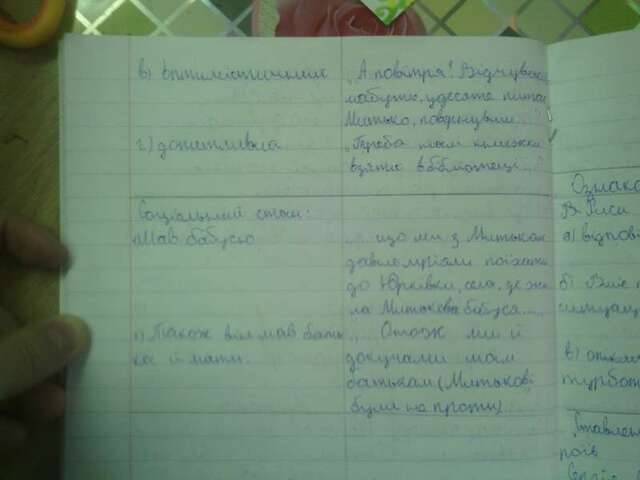 в) Оптимістичним
„А повітря! Відчуваєш,
мабуть, удесяте питає
Митько, повернувши
г) допитлива
„Треба мати книжки
взятю в бібліотеці...
Соціальний стан:
Мав бабусю
„... що ми з Митьком
давно мріяли поїхати
до Юрківки, села, де жи
ла Митькова бабуся...
Також він мав бать
ка й мати.
„... Отож ми й
докучали моїм
батькам (Митькові
були не проти)...
Ознака
В. Риси
а) відпов
б)
ситуац
в)
турбот
Ставлен
роїв